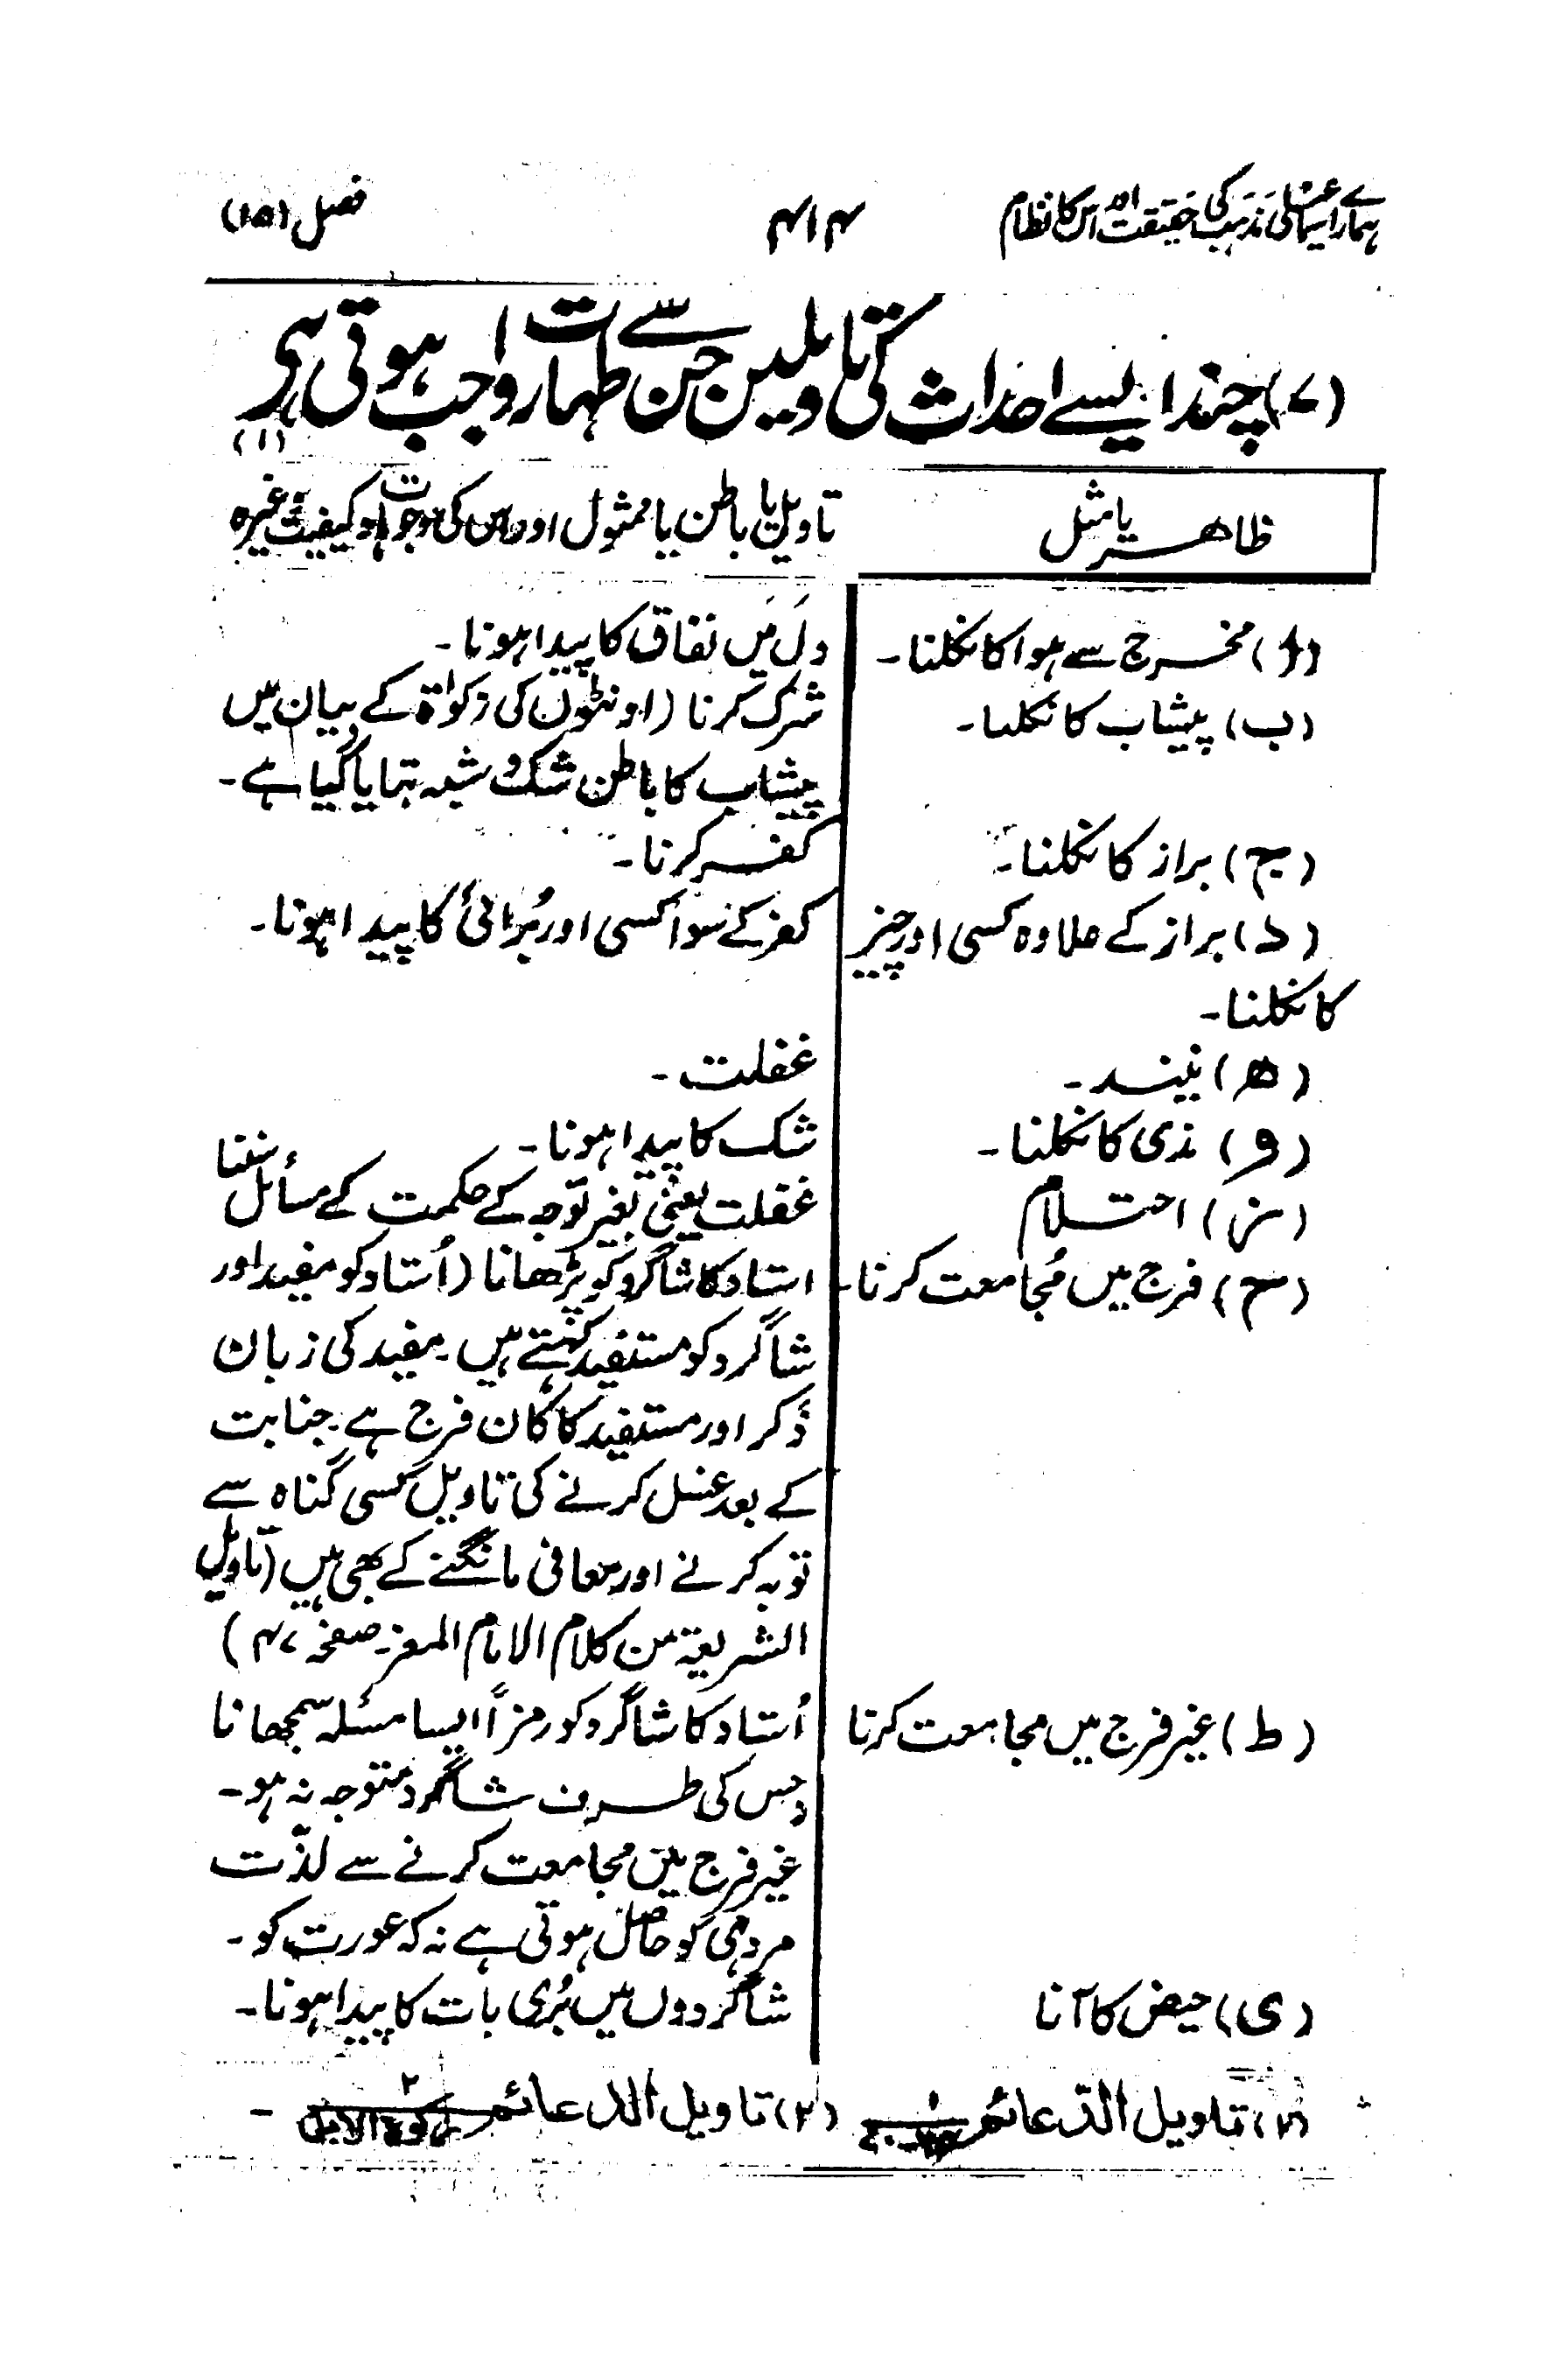 ہمارے اسماعیلی مذہب کی حقیقت اور اس کا نظام
۴۱۴
فصل (۱۵)
(۷) چند ایسے احداث کی تاویلیں جن سے طہارت واجب ہوتی ہے
(۱)
ظاھر یا مثل
تاویل یا باطن یا ممثول اور اس کی وجوہات و کیفیت وغیرہ
(ا) مخرج سے ہوا کا نکلنا۔
دل میں نفاق کا پیدا ہونا۔
(ب) پیشاب کا نکلنا۔
شرک کرنا (اونٹوں کی زکواۃ کے بیان میں
پیشاب کا باطن شک و شبہ بتایا گیا ہے۔
(ج) براز کا نکلنا۔
کفر کرنا۔
(د) براز کے علاوہ کسی اور چیز
کا نکلنا۔
کفر کے سوا کسی اور بُرائی کا پیدا ہونا۔
(ھ) نیند۔
غفلت۔
(و) مذی کا نکلنا۔
شک کا پیدا ہونا۔
(ز) احتلام
غفلت یعنی بغیر توجہ کے حکمت کے مسائل سننا
(ح) فرج میں مُجامعت کرنا۔
استاد کا شاگرد کو پڑھانا (اُستاد کو مفید اور
شاگرد کو مستفید کہتے ہیں۔ مفید کی زبان
ذَکر اور مستفید کا کان فرج ہے۔ جنابت
کے بعد غسل کرنے کی تاویل کسی گناہ سے
توبہ کرنے اور معافی مانگنے کے بھی ہیں (تاویل
الشریعۃ من کلام الامام المعز۔ صفحہ ۴۷)
(ط) غیر فرج میں مجامعت کرنا
اُستاد کا شاگرد کو رمزاً ایسا مسئلہ سمجھانا
جس کی طرف شاگرد متوجہ نہ ہو۔
غیر فرج میں مجامعت کرنے سے لذّت
مرد ہی کو حاصل ہوتی ہے نہ کہ عورت کو۔
(ی) حیض کا آنا
شاگردوں میں بُری بات کا پیدا ہونا۔
(۱) تاویل الدّعائم ۱
(۲) تاویل الدعائم ۲ زکوۃ الابل ۔